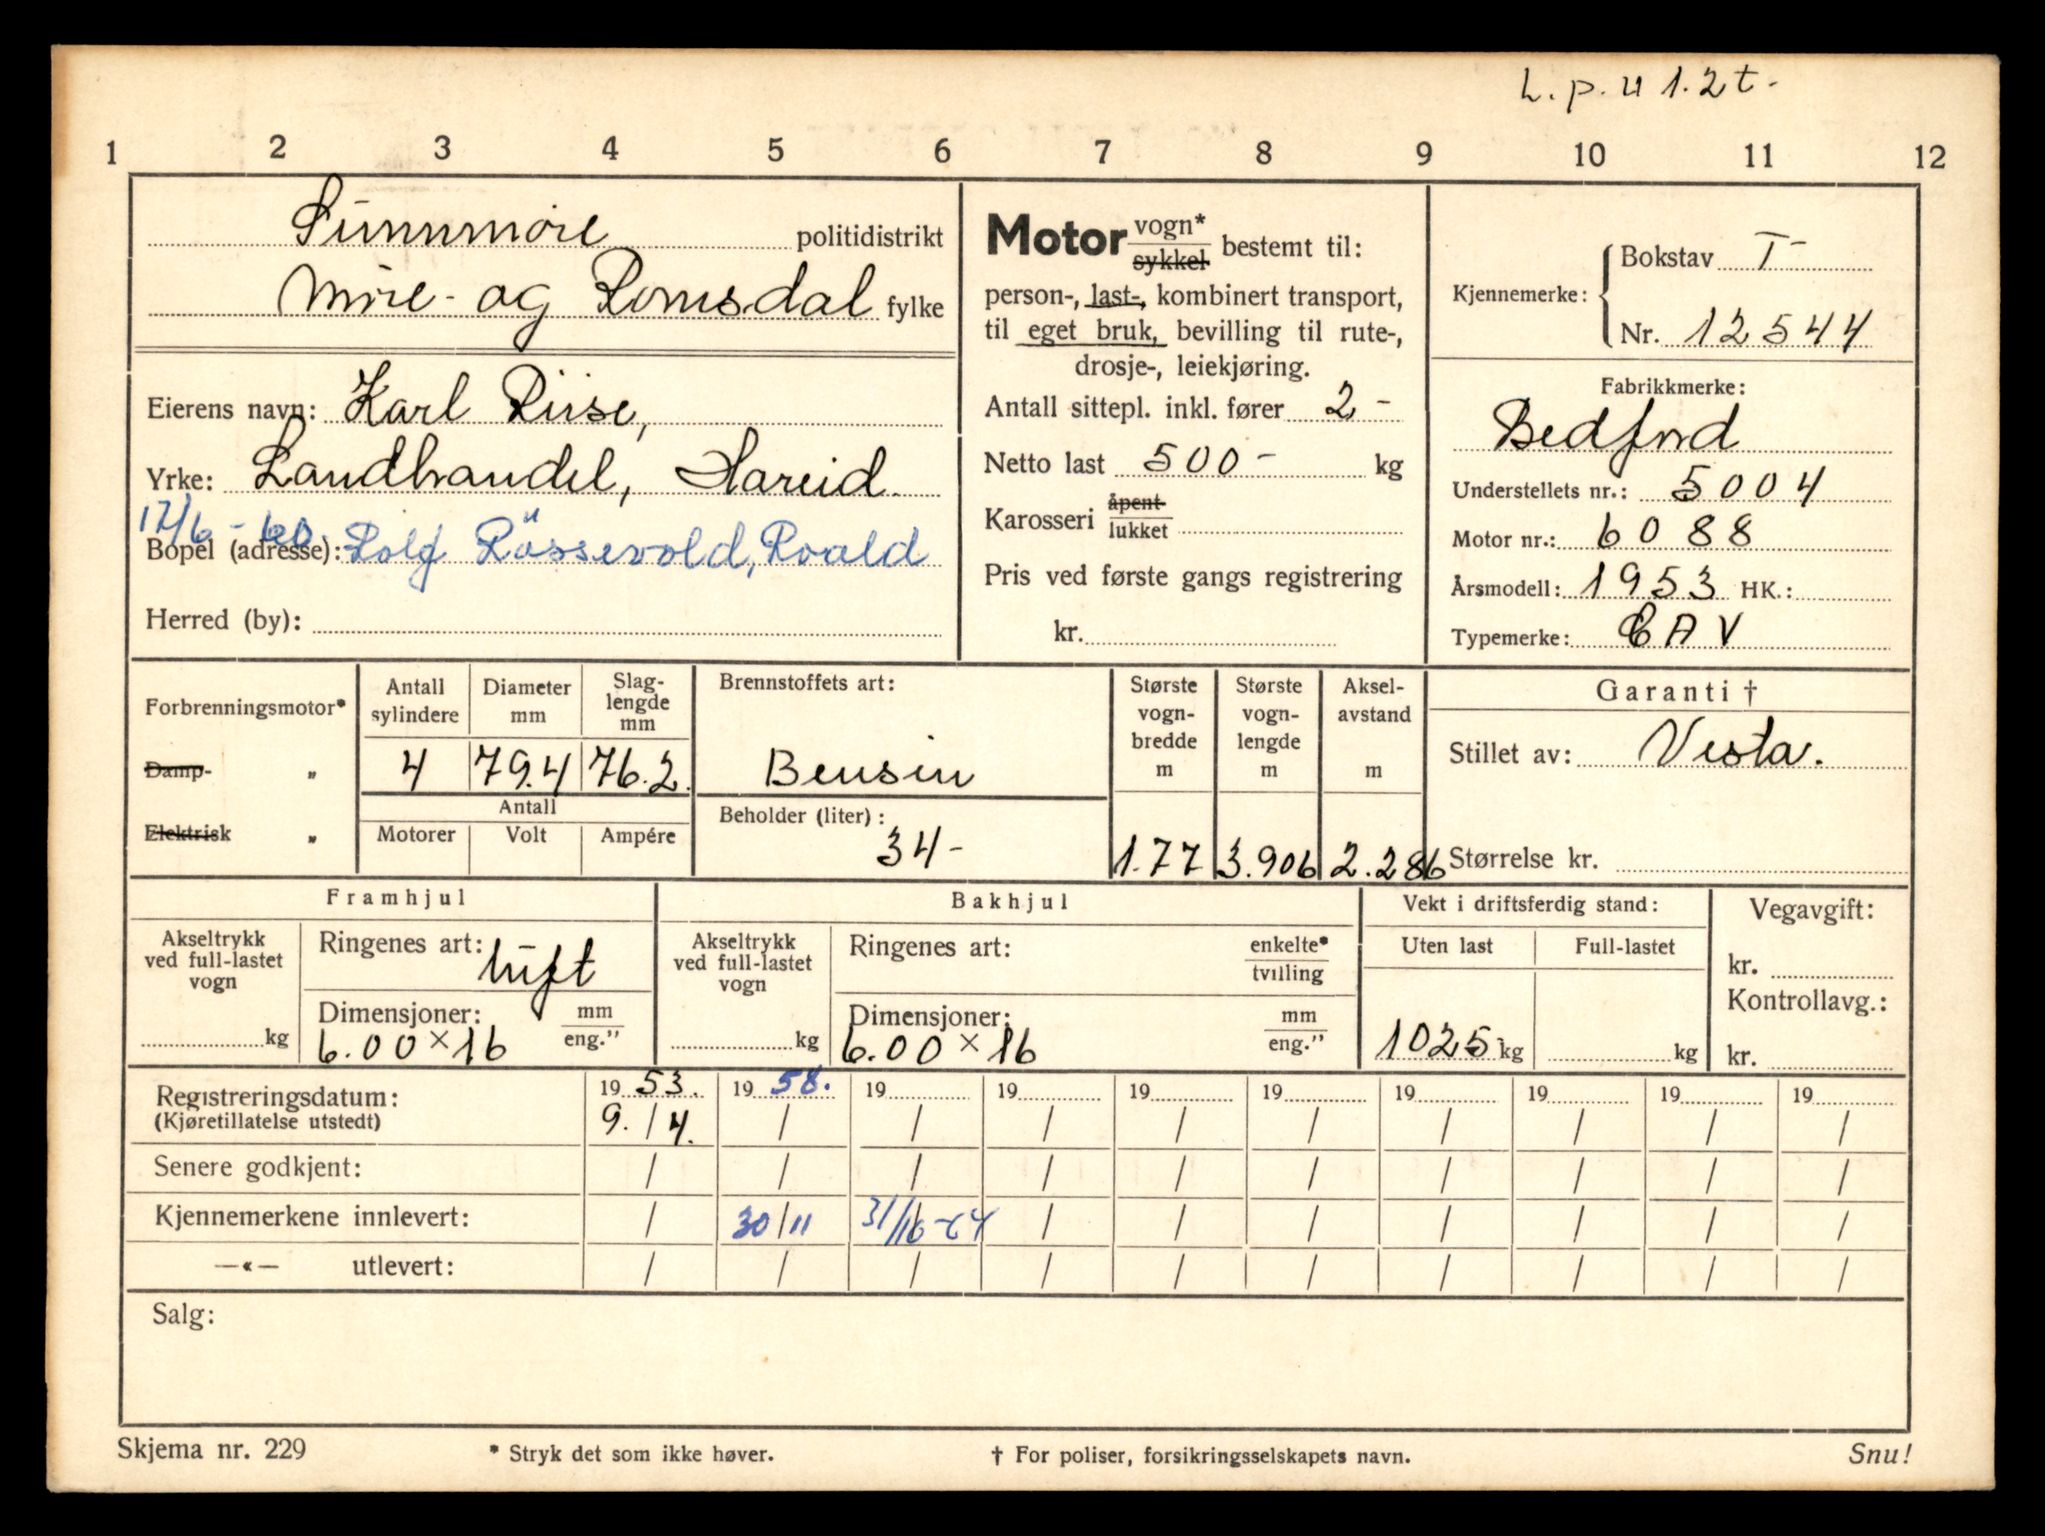 L.p.u 1.2t-
1 2 3 4 5 6 7 8 9 10 11 12
Sunnmøre politidistrikt
Møre- og Romsdal fylke
Eierens navn: Karl Riise,
Yrke: Landhandel, Hareid.
17/6-60
Bopel (adresse): Rolf Røssevold, Roald
Herred (by):
Motor vogn* bestemt til:
sykkel
person-, last-, kombinert transport,
til eget bruk, bevilling til rute-,
drosje-, leiekjøring.
Antall sittepl. inkl. fører 2-
Netto last 500- kg
Karosseri åpent
lukket
Pris ved første gangs registrering
kr.
Kjennemerke: Bokstav T-
Nr. 12544
Fabrikkmerke:
Bedford
Understellets nr.: 5004
Motor nr.: 6088
Årsmodell: 1953 HK.:
Typemerke: CAV
Forbrenningsmotor*
Damp- „
Elektrisk „
Antall sylindere Diameter mm Slag-lengde mm
4 79.4 76.2.
Antall
Motorer Volt Ampére
Brennstoffets art:
Bensin
Beholder (liter):
34-
Største vogn-bredde m
1.77
Største vogn-lengde m
3.906
Aksel-avstand m
2.286
Garanti †
Stillet av: Vesta.
Størrelse kr.
Framhjul
Akseltrykk ved full-lastet vogn
kg
Ringenes art: luft
Dimensjoner: mm
6.00×16 eng."
Bakhjul
Akseltrykk ved full-lastet vogn
kg
Ringenes art: enkelte*
tvilling
Dimensjoner: mm
6.00×16 eng."
Vekt i driftsferdig stand:
Uten last Full-lastet
1025 kg kg
Vegavgift:
kr.
Kontrollavg.:
kr.
Registreringsdatum: 1953. 1958. 19 19 19 19 19 19 19 19
(Kjøretillatelse utstedt) 9./4. / / / / / / / / /
Senere godkjent: / / / / / / / / / /
Kjennemerkene innlevert: / 30/11 31/10-64 / / / / / / /
—«— utlevert: / / / / / / / / / /
Salg:
Skjema nr. 229 * Stryk det som ikke høver. † For poliser, forsikringsselskapets navn. Snu!